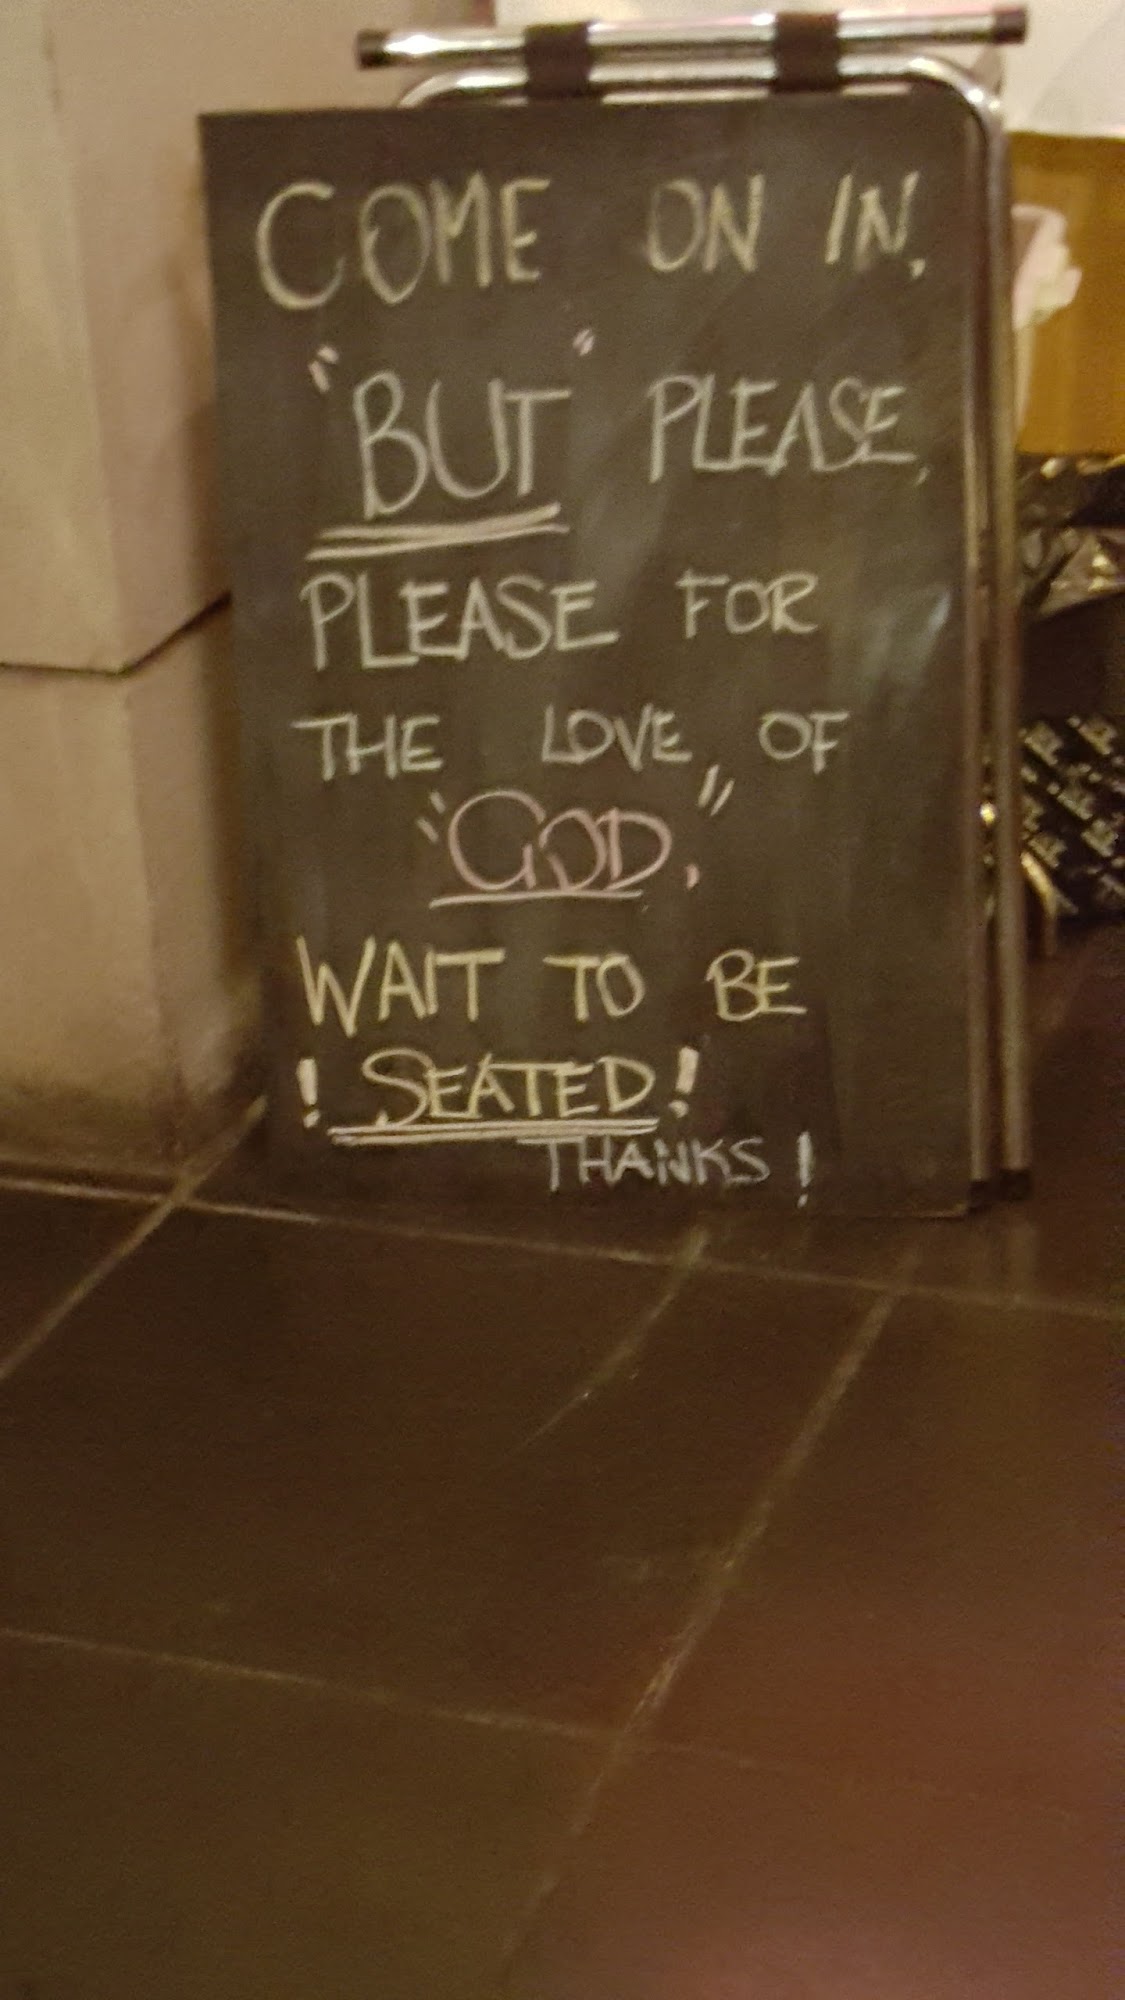 COME ON IN,
"BUT" PLEASE,
PLEASE FOR
THE LOVE OF
"GOD."
WAIT TO BE
! SEATED!
THANKS!